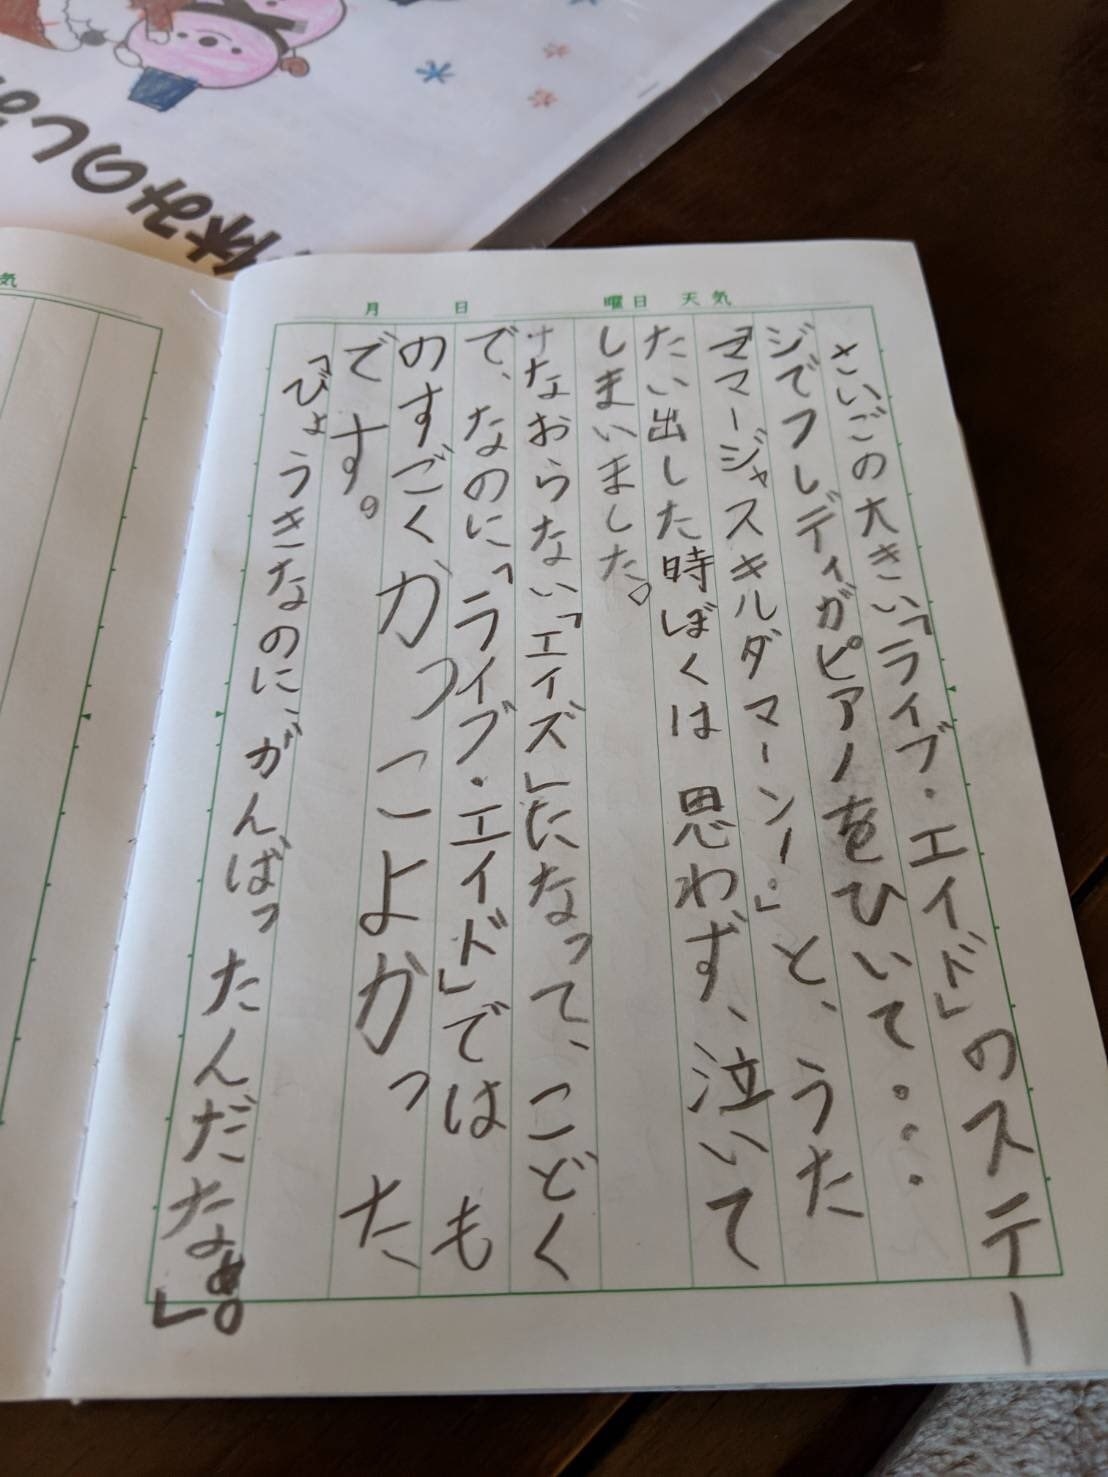 休みのし
気
月 日 曜日 天気
さいごの大きい「ライブ・エイド」のステー
ジでフレディがピアノをひいて・・・
「ママージャスキルダマーンー。」と、うた
たい出した時ぼくは思わず、泣いて
しまいました。
なおらない「エイズ」になって、こどく
で、なのに「ライブ・エイド」ではも
のすごくかっこよかった
です。
「びょうきなのに、がんばっ たんだなぁ。」